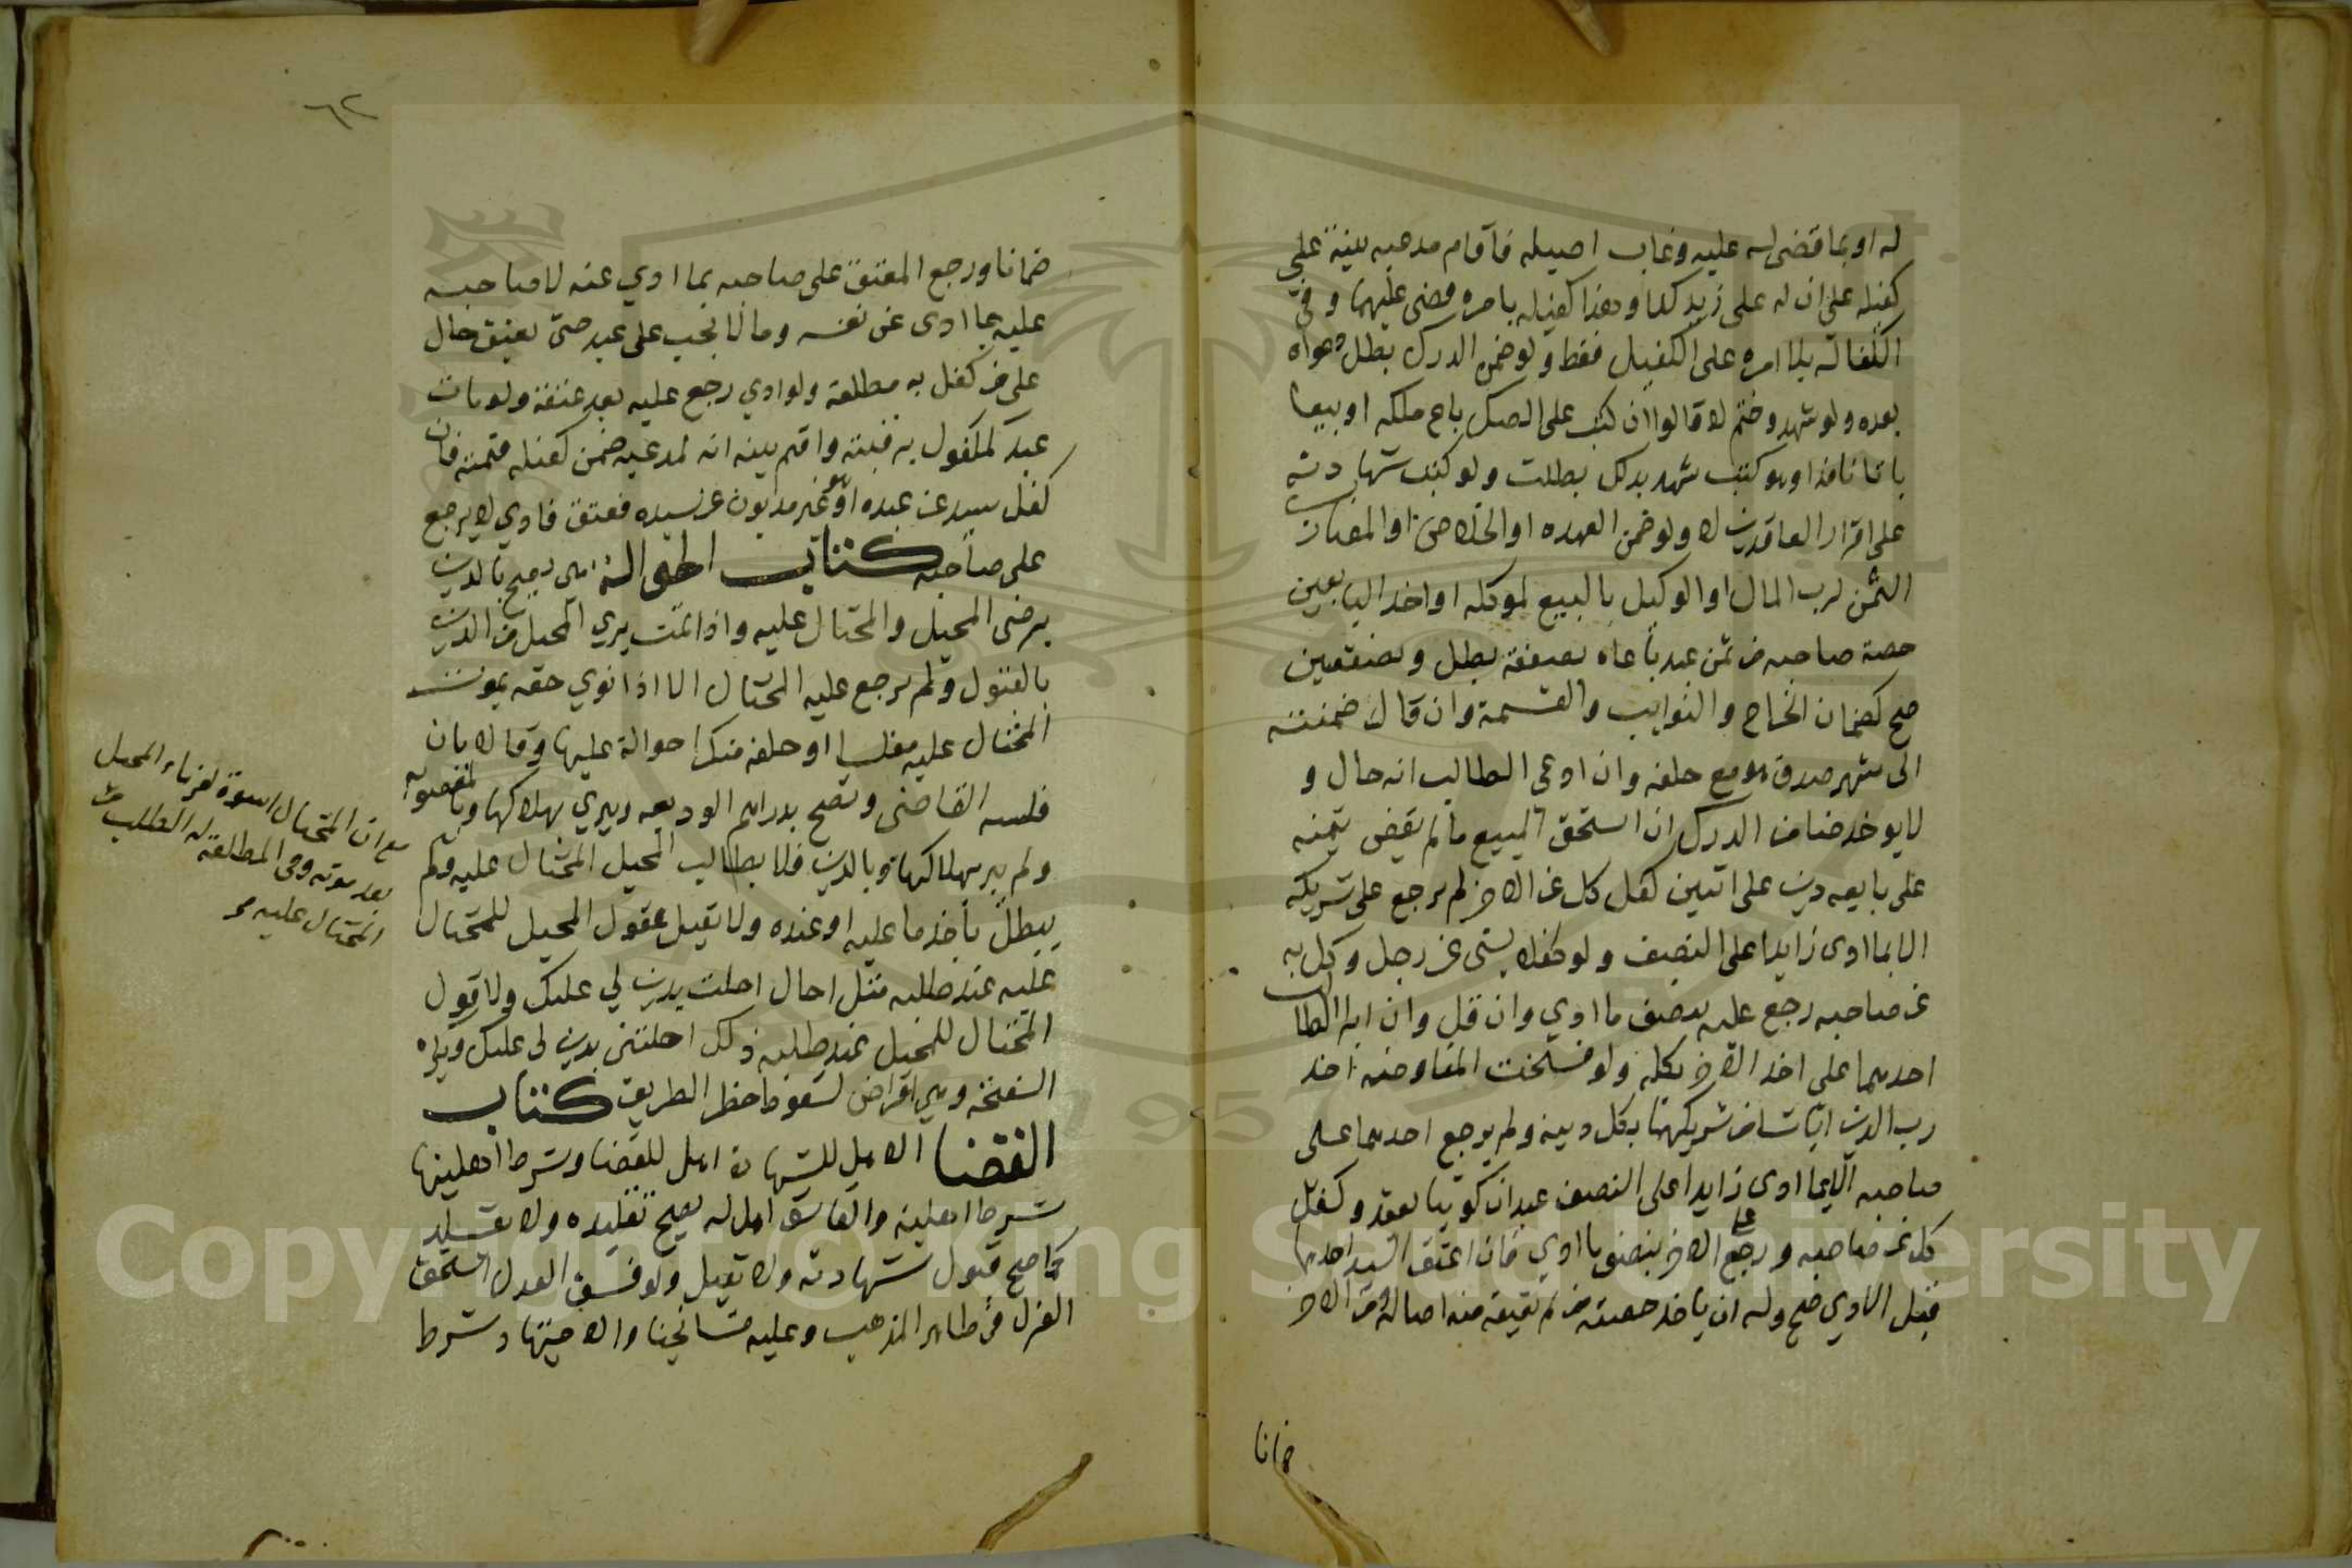 له او بما قضى له عليه وغاب اصيله فاقام مدعيه بينة على
كفيله على ان له على زيد كذا وهذا كفيله بامره قضى عليهما وفي
الكفالة بلا امره على الكفيل فقط ولو ضمن الدرك بطل دعواه
بعده ولو شهد وختم لا قالوا ان كتب على الصك باع ملكه او بيعا
باتا نافذا وهو كتب شهد بذلك بطلت ولو كتب شهادته
على اقرار العاقدين لا ولو ضمن العهده او الخلاص او المضارب
الثمن لرب المال او الوكيل بالبيع لموكله او احد البايعين
حصة صاحبه من ثمن عبد باعاه بصفقة بطل وبصفقتين
صح كضمان الخراج والنوايب والقسمة وان قال ضمنته
الى شهر صدق هو مع حلفه وان ادعى الطالب انه حال و
لا يوخذ ضامن الدرك ان استحق المبيع ما لم يقض بثمنه
على بايعه دين على اثنين كفل كل عن الاخر لم يرجع على شريكه
الا بما ادى زايدا على النصف ولو كفلا بشى عن رجل وكل به
عن صاحبه رجع عليه بنصف ما ادي وان قل وان ابرا الطالب
احدهما على اخذ الاخر بكله ولو فسخت المفاوضه اخذ
رب الدين ايا شا من شريكهما بكل دينه ولم يرجع احدهما على
صاحبه الا بما ادى زايدا على النصف عبدان كوتبا بعقد وكفل
كل عن صاحبه ورجع على الاخر بنصف ما ادي فان اعتق السيد احدهما
قبل الادي صح وله ان ياخذ حصة من لم يعتقه منه اصالة ومن الاخر
ضمانا
٦٢
ضمانا ورجع المعتق على صاحبه بما ادي عنه لا صاحبه
عليه بما ادى عن نفسه ومال لا يجب على عبد حتى يعتق حال
على من كفل به مطلقة ولو ادي رجع عليه بعد عتقه ولو مات
عبد مكفول برقبته واقيم بينه انه لمدعيه ضمن كفيله قيمته فان
كفل سيد عن عبده او هو غير مديون عن سيده فعتق فادي لا يرجع
على صاحبه كتاب الحوالة هي تصح بالدين
برضى المحيل والمحتال عليه واذا تمت بري المحيل من الدين
بالقبول ولم يرجع عليه المحتال الا اذا توي حقه بموت
المحتال عليه مفلسا او حلفه منكرا حوالة عليها وقالا بان
فلسه القاضى وتصح بدراهم الوديعه ويبري بهلاكها وبالمغصوبه
ولم يبر بهلاكها وبالدين فلا يطالب المحيل المحتال عليه ولم
يبطل باخذ ما عليه او عنده ولا تقبل بقول المحيل للمحتال
عليه عند طلبه مثل احال احلت بدين لي عليك ولا قول
المحتال للمحيل عند طلبه ذلك احلتنى بدين لى عليك ويكره
السفتجه وهي اقراض لسقوط خطر الطريق كتاب
القضا الاهل للشهادة اهل للقضا وشرط اهليتها
شرط اهليته والفاسق اهل له يصح تقليده ولا يقلد
كما صح قبول شهادته ولا تقبل ولو فسق العدل استحق
العزل في ظاهر المذهب وعليه مشايخنا والاجتهاد شرط
مع ان المحتال اسوة لغرماء المحيل
بعد موته وفى المطلقة له الطلب من
المحتال عليه